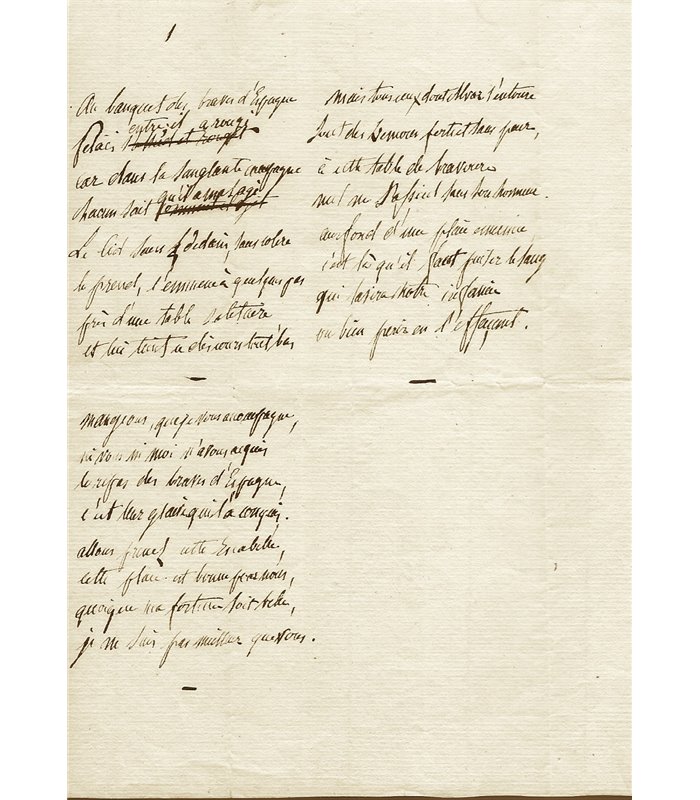 1
Au banquet des braves d'Espagne
entre il a rougi
Pelaës
car dans la sanglante campagne
qu'il a mal agi
chacun sait
Le Cid sans dédain, sans colère
le prend, l'emmène à quelques pas
près d'une table solitaire
et lui tint ce discours tout bas
mangeons, que je vous accompagne,
ni vous ni moi n'avons acquis
le repas des braves d'Espagne,
c'est leur gloire qui l'a conquis.
allons prenez cette Escabelle,
cette place est bonne pour nous,
quoique ma fortune soit belle,
je ne suis pas meilleur que vous.
mais tous ceux dont Alvar s'entoure
sont des Démons forts et sans peur,
à cette table de bravoure
nul ne s'assied sans son honneur.
au fond d'une plaie ennemie
c'est là qu'il faut puiser le sang
qui lavera notre infamie
ou bien périr en l'effaçant.